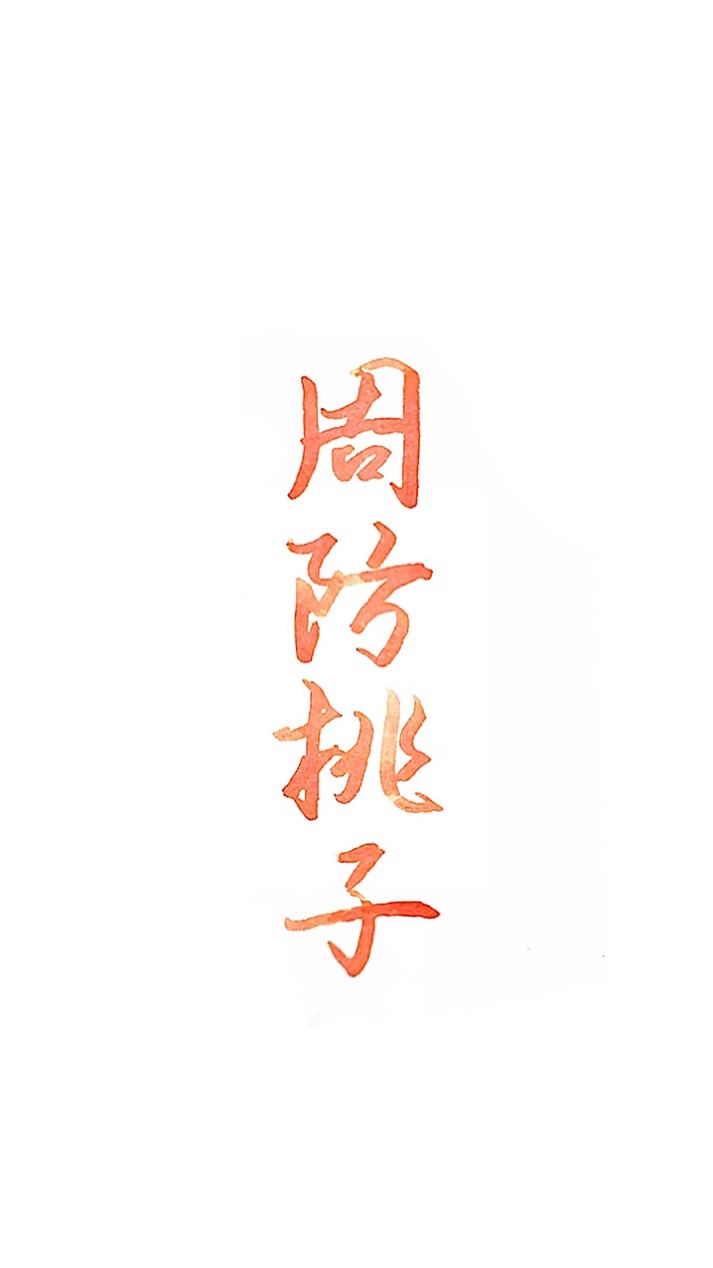 周防桃子